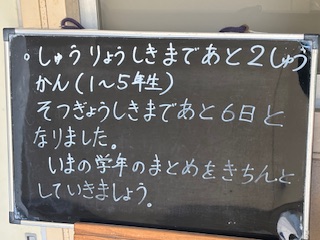 。しゅうりょうしきまであと2しゅう
かん(1～5年生)
そつぎょうしきまであと6日と
なりました。
いまの学年のまとめをきちんと
していきましょう。